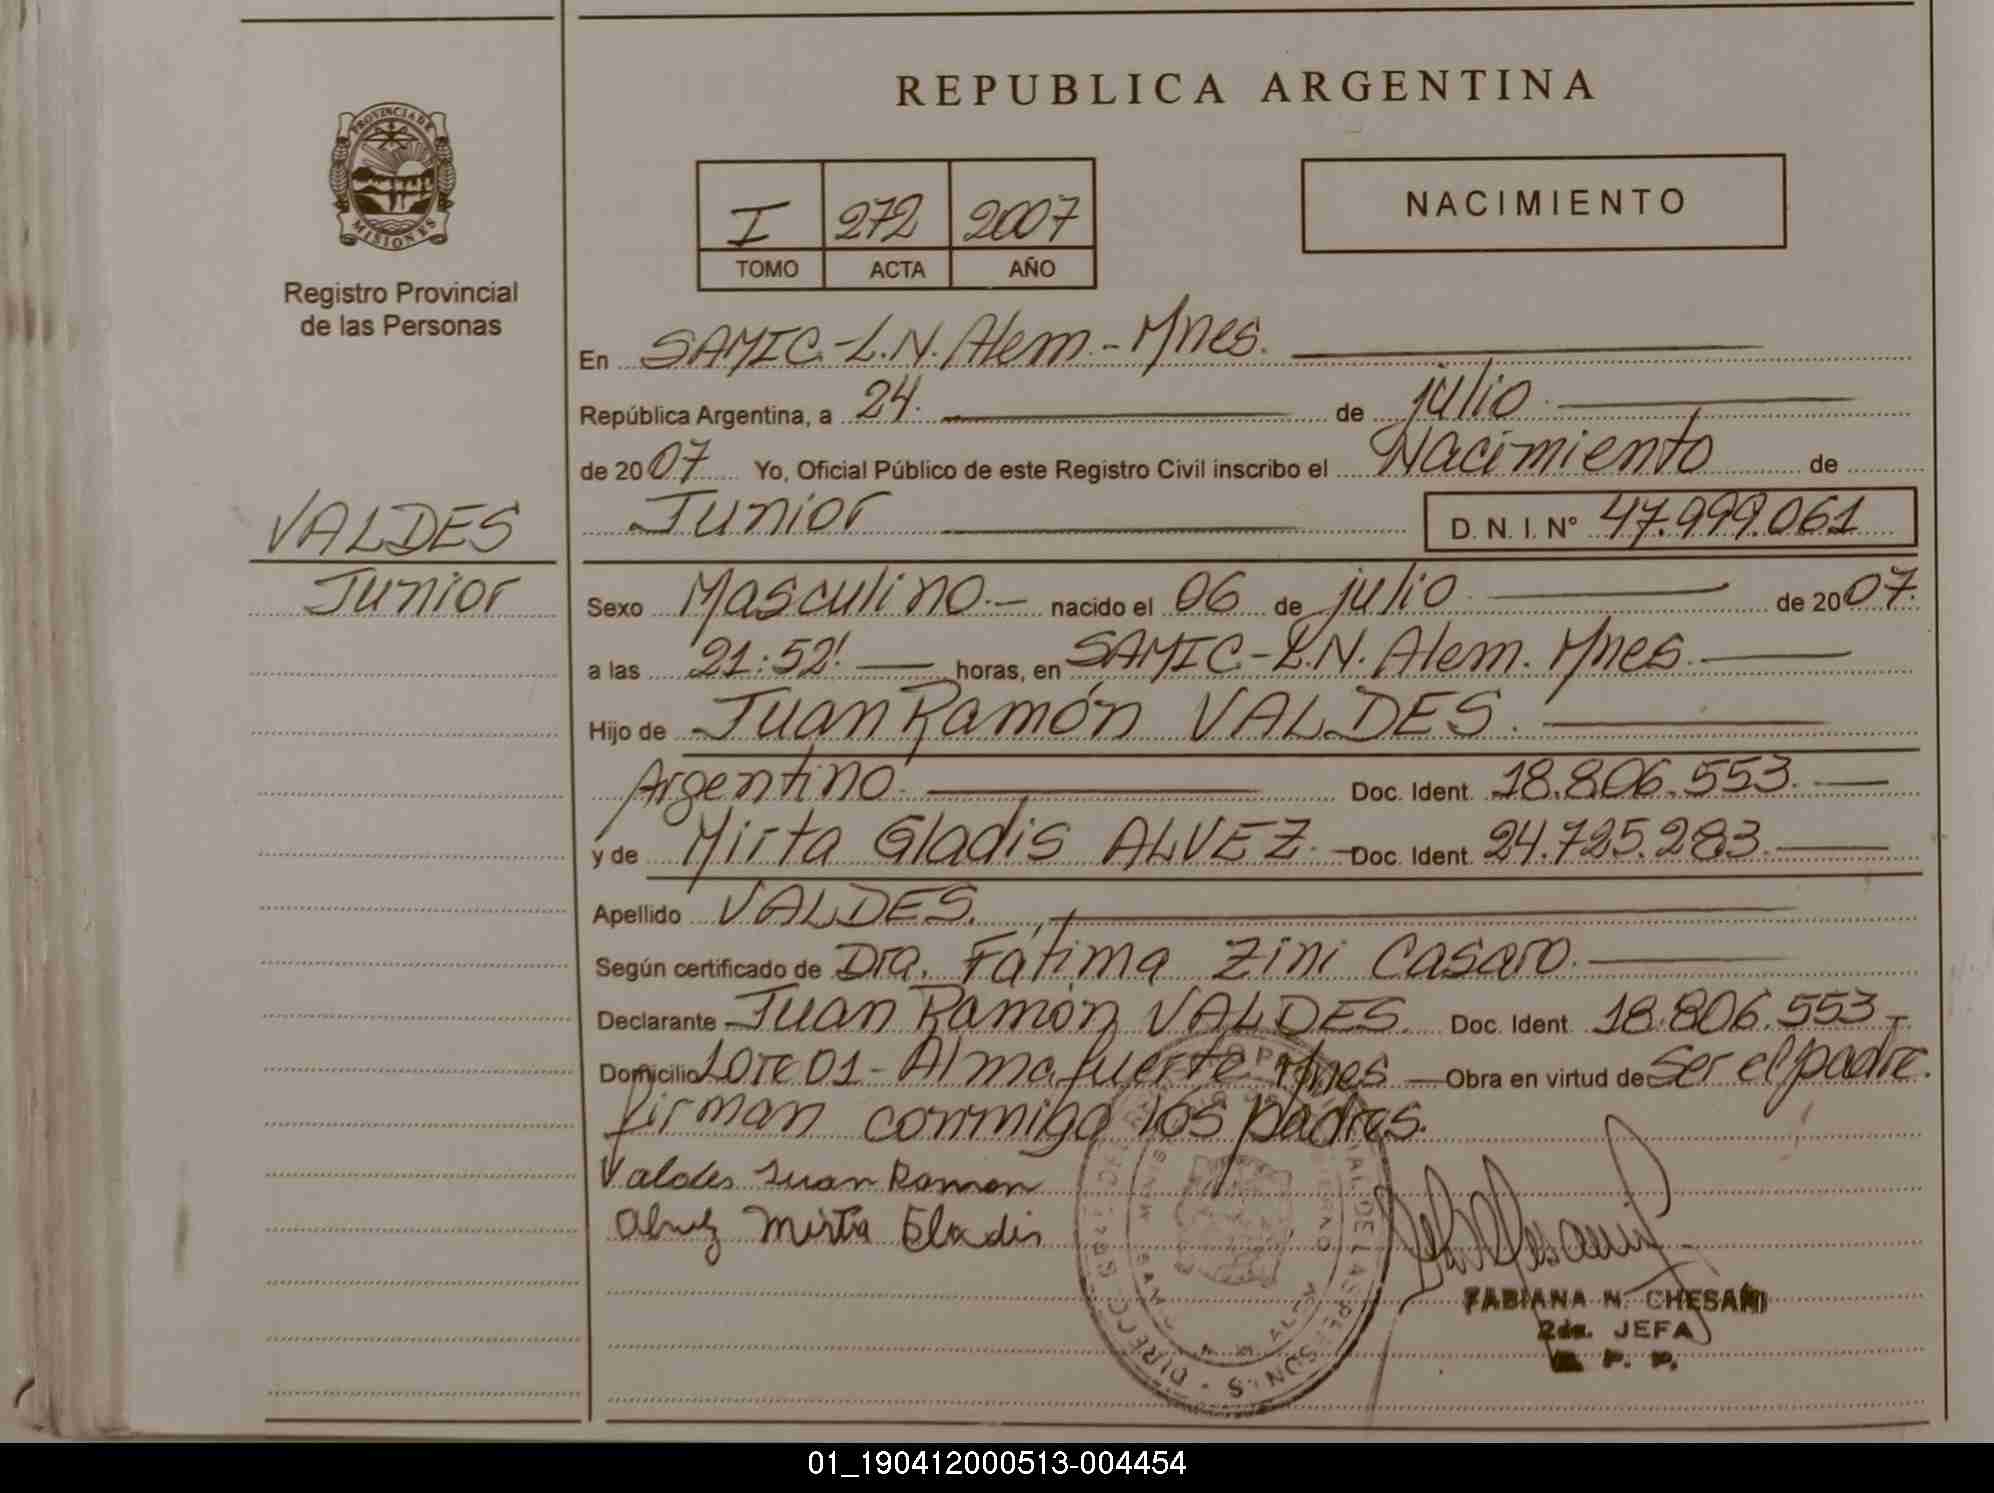 REPUBLICA ARGENTINA
PROVINCIA DE
MISIONES
Registro Provincial
de las Personas
I 272 2007
TOMO ACTA AÑO
NACIMIENTO
En SAMIC.-L.N.Alem.-Mnes.
República Argentina, a 24. de julio.
de 2007 Yo, Oficial Público de este Registro Civil inscribo el Nacimiento de
Junior D. N. I. N° 47.999.061
VALDES
Junior
Sexo Masculino.- nacido el 06 de julio de 2007.
a las 21:52' horas, en SAMIC-L.N. Alem. Mnes.
Hijo de Juan Ramón VALDES.
Argentino. Doc. Ident. 18.806.553.
y de Mirta Gladis ALVEZ.- Doc. Ident. 24.725.283.
Apellido VALDES.
Según certificado de Dra. Fátima Zini Casaro.
Declarante Juan Ramón VALDES. Doc. Ident. 18.806.553-
Domicilio Lote 01-Almafuerte-Mnes Obra en virtud de Ser el padre.
firman conmigo los padres.
Valdes Juan Ramon
Mirta Gladis
FABIANA N. CHESANI
2da. JEFA
R. P. P.
01_190412000513-004454